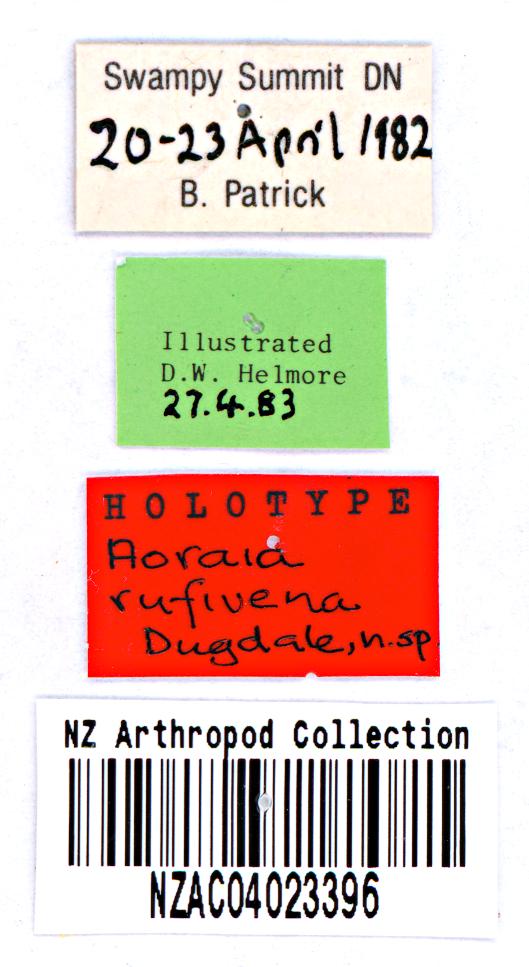 Swampy Summit DN
20-23 April 1982
B. Patrick
Illustrated
D.W. Helmore
27.4.83
HOLOTYPE
Aoraia
rufivena
Dugdale, n.sp.
NZ Arthropod Collection
NZAC04023396